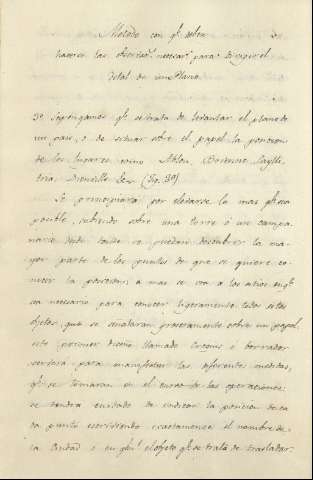 Metodo con qᵉ deben
hacerse las observasˢ necesarˢ para Dirigir el
detal de un Plano
3º Supongamos qᵉ se trata de levantar el plano de
un pais, o de situar sobre el papel la posicion
de los lugares como
(Fig. 39)
Se principiará por elevarse lo mas qᵉ sea
posible, subiendo sobre una torre ó un campa-
nario desde donde se puedan descubrir la ma-
yor parte de los puntos de que se quiere co-
nocer la posicion; a mas se va a los sitios en qᵉ
sea necesario para conocer ligeramente todos estos
objetos, que se anotaran groseramente sobre un papel
este primer diseño llamado Croquis ó borrador
servirá para manifestar las diferentes medidas,
qᵉ se tomaran en el curso de las operaciones:
se tendra cuidado de indicar la posicion de ca
da punto escribiendo exactamente el nombre de
la Ciudad o en el objeto qᵉ se trata de trasladar.